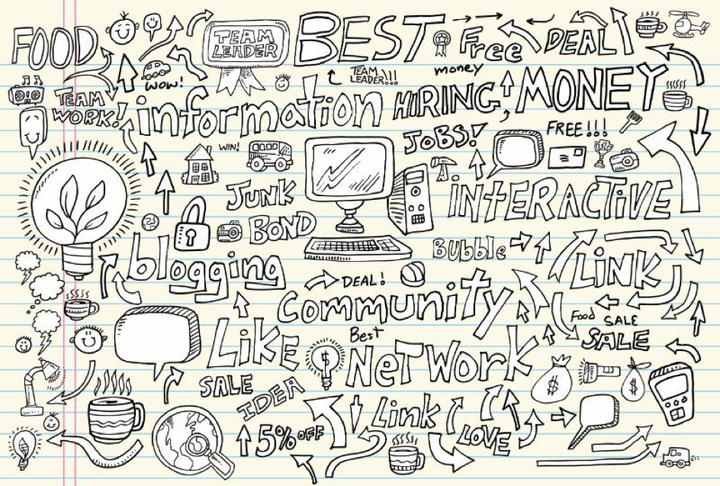 FOOD
TEAM
LEADER
BEST
Free
DEAL!
money
WOW!
TEAM
LEADER!!!
TEAM
WORK!
information
HIRING,
MONEY
JOBS!
FREE!!!
WIN!
JUNK
BOND
INTERACTIVE
blogging
Bubble
LINK
DEAL!
Community
Food SALE
SALE
LIKE
Best
NETWORK
SALE
IDEA
$
$
Link
5% OFF
LOVE